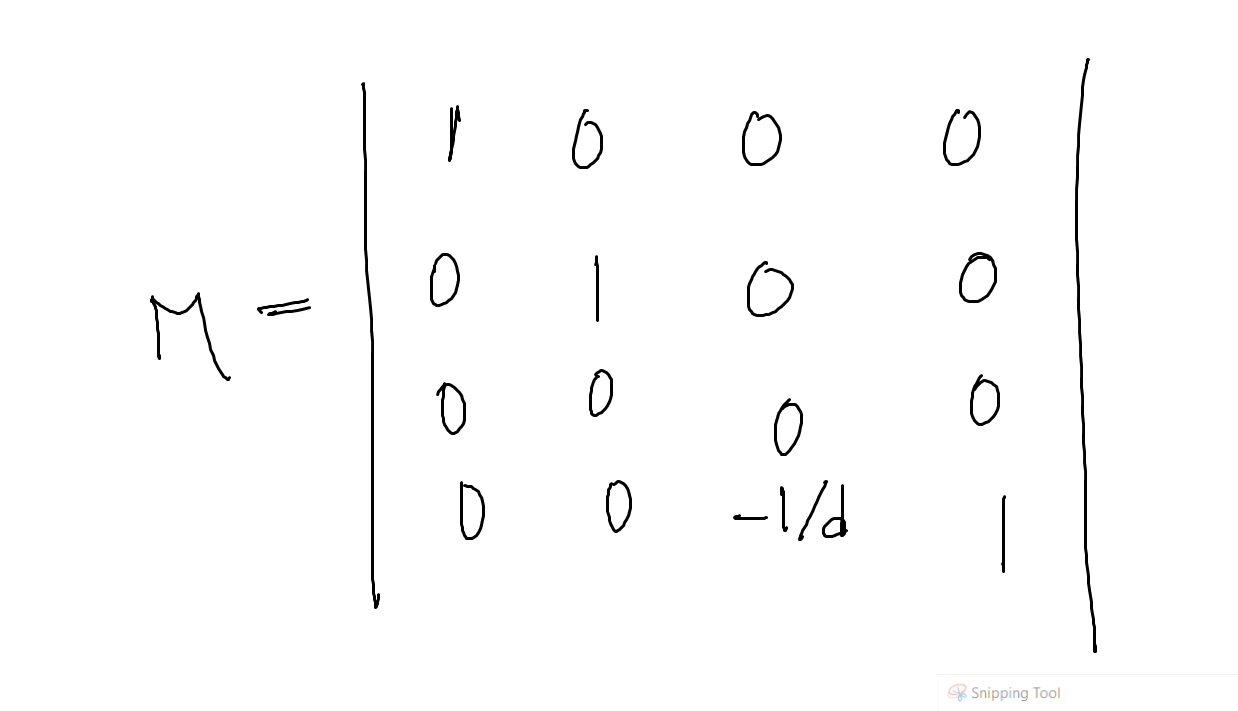 1 0 0 0
0 1 0 0
M =
0 0 0 0
0 0 -1/d 1
Snipping Tool